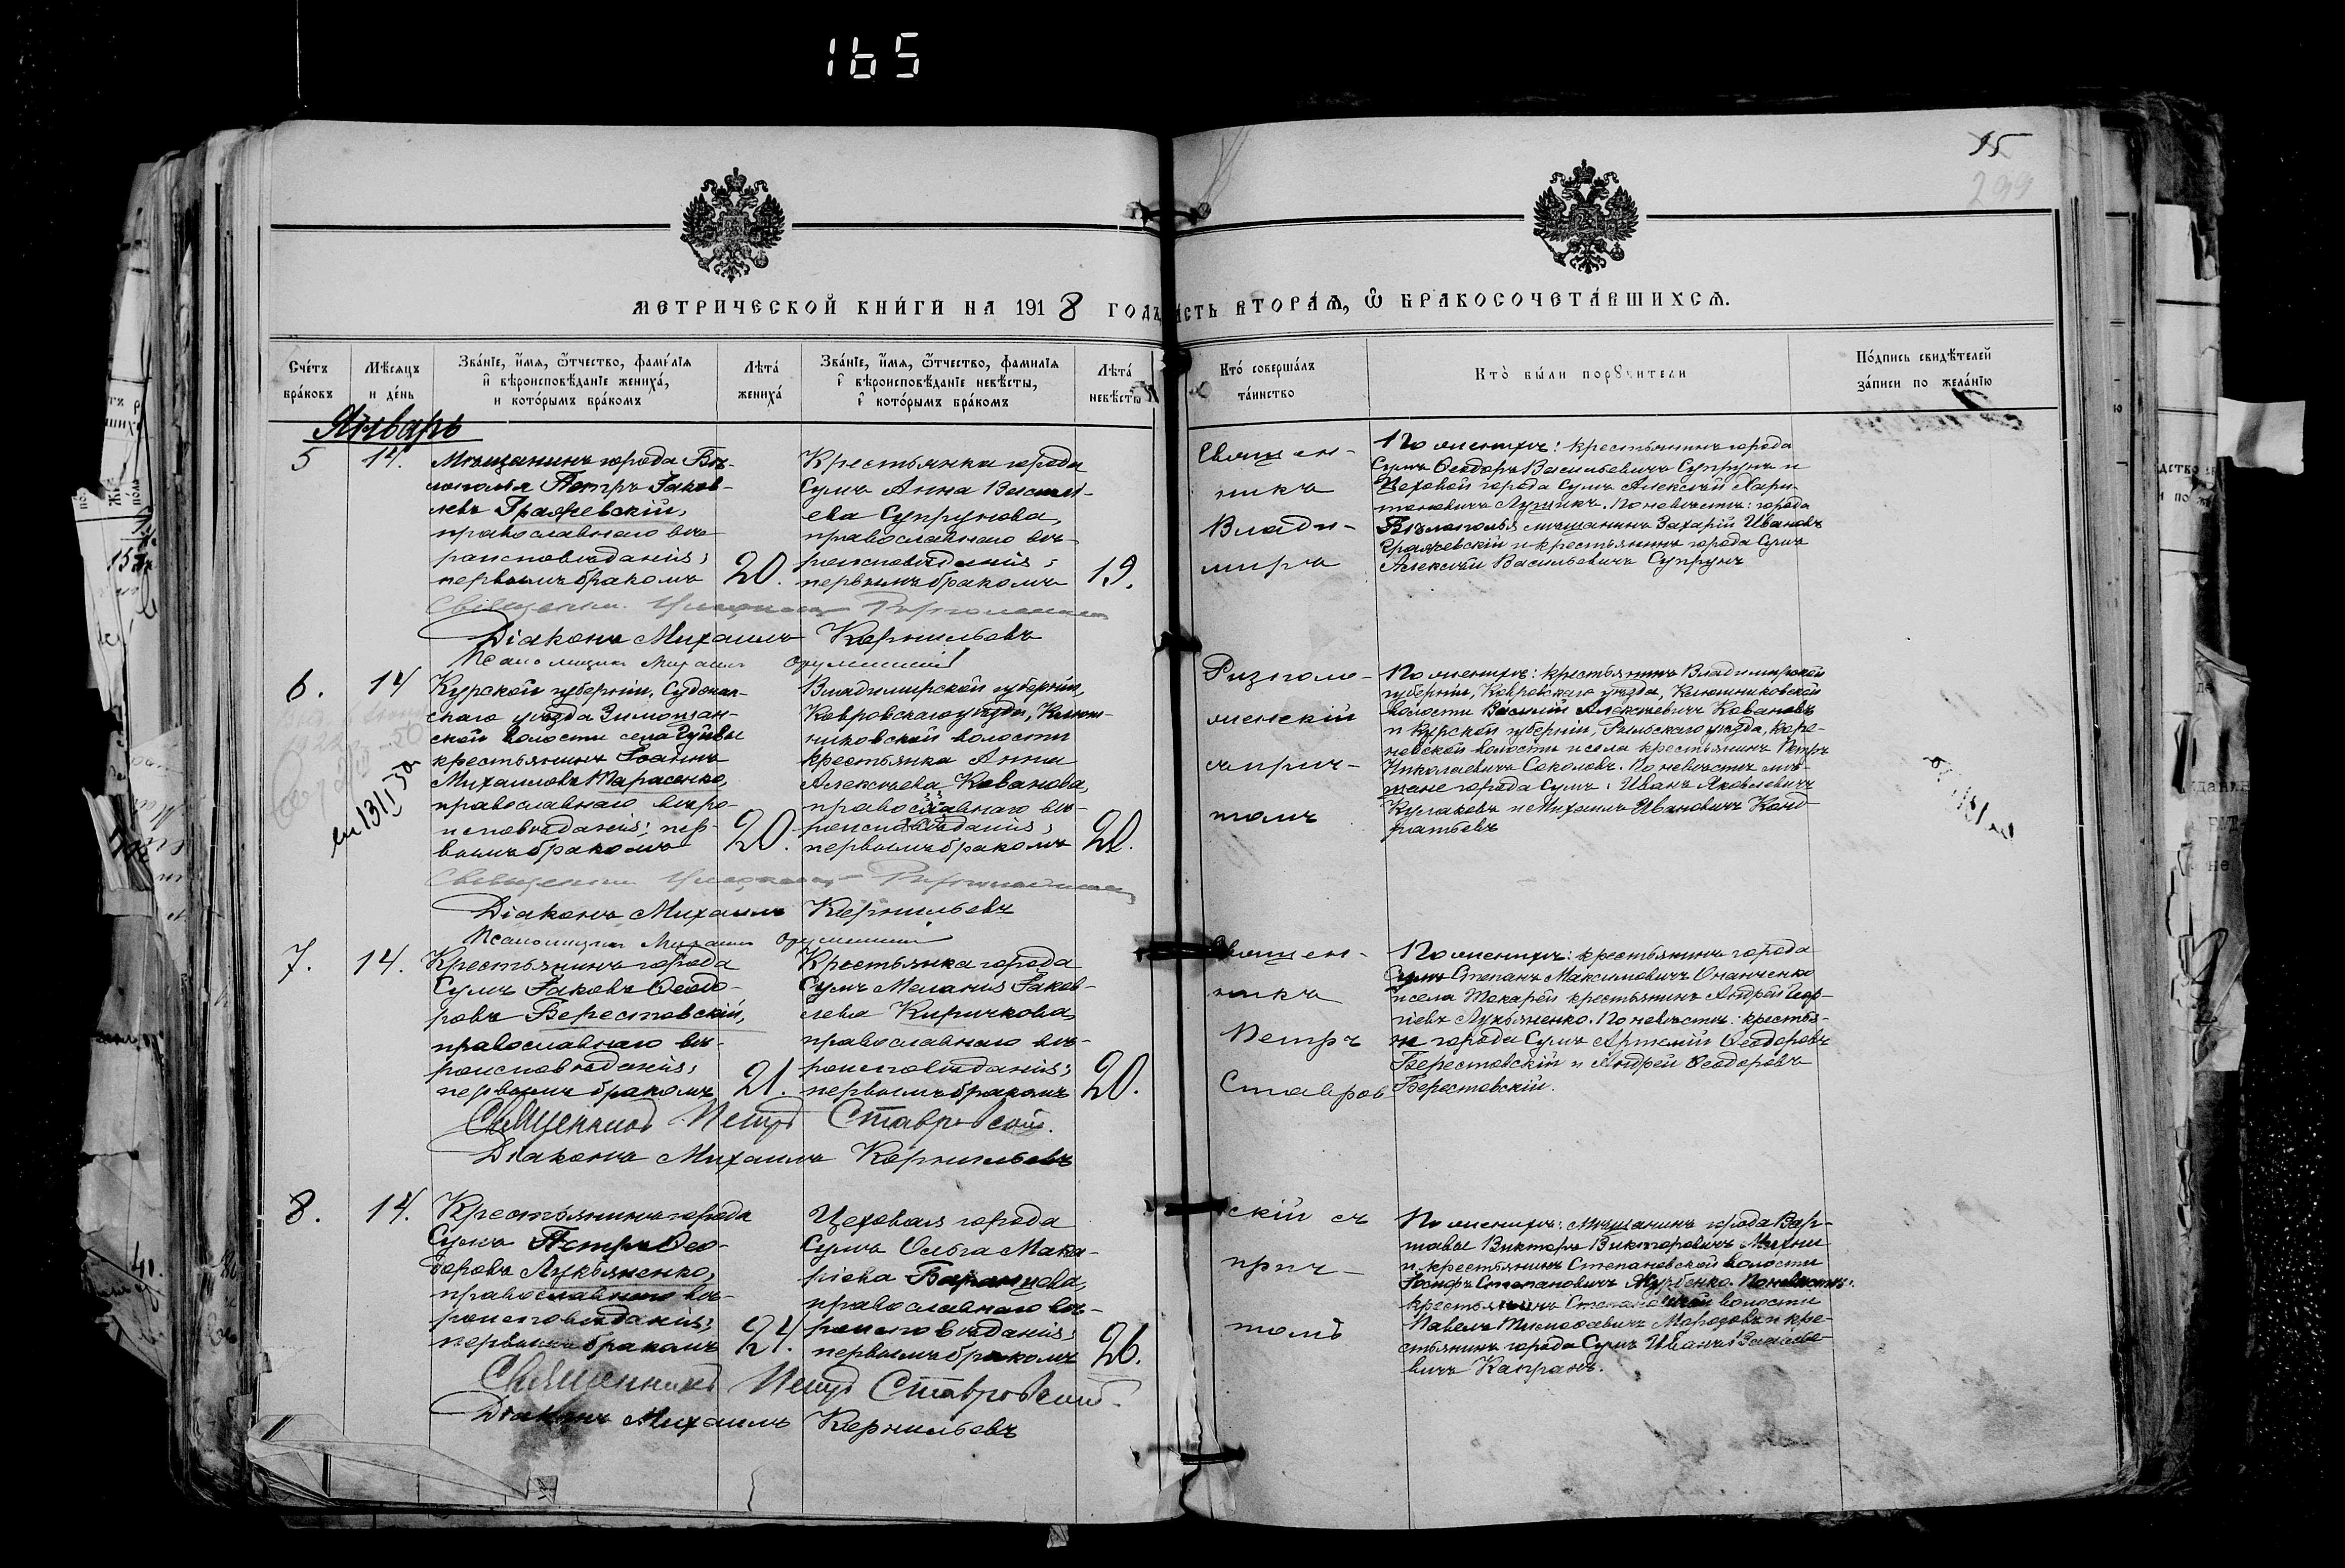 165
15
299
МЕТРИЧЕСКОЙ КНИГИ НА 1918 ГОДЪ
СТЬ ВТОРАЯ, Ѿ БРАКОСОЧЕТАВШИХСЯ.
Счетъ браковъ
Мѣсяцъ и день
Званіе, имя, ѿтчество, фамилія
и вѣроисповѣданіе жениха,
и которымъ бракомъ
Лѣта жениха
Званіе, имя, ѿтчество, фамилія
и вѣроисповѣданіе невѣсты,
и которымъ бракомъ
Лѣта невѣсты
Кто совершалъ
таинство
Кто были порꙋчители
Подпись свидѣтелей
записи по желанію
Январь
5 14.
Мѣщанинъ города Бѣ-
лополья Петръ Іаков-
левъ Гражевскій,
православнаго вѣ-
роисповѣданія;
первымъ бракомъ
20.
Крестьянка города
Сумъ Анна Василі-
ева Супрунова,
православнаго вѣ-
роисповѣданія;
первымъ бракомъ
19.
Священ-
никъ
Влади-
миръ
По женихѣ: крестьянинъ города
Сумъ Ѳеодоръ Васильевичъ Супрунъ и
Цеховой города Сумъ Алексѣй Хари-
тоновичъ Лущикъ. По невѣстѣ: города
Бѣлополья мѣщанинъ Захарій Ивановъ
Гражевскій и крестьянинъ города Сумъ
Алексѣй Васильевичъ Супрунъ
Діаконъ Михаилъ Корнильевъ
Псаломщикъ Михаилъ
6. 14
Курской губерніи, Суджан-
скаго уѣзда
ской волости села Гуйвы
крестьянинъ Іоаннъ
Михаиловъ Тарасенко,
православнаго вѣро-
исповѣданія; пер-
вымъ бракомъ
20.
Владимирской губерніи,
Ковровскаго уѣзда, Клюш-
никовской волости
крестьянка Анна
Алексѣева Кованова,
православнаго вѣ-
роисповѣданія;
первымъ бракомъ
20.
Ризполо-
женскій
съ прич-
томъ
По женихѣ: крестьянинъ Владимирской
губерніи, Ковровскаго уѣзда, Клюшниковской
волости Василій Алексѣевичъ Ковановъ
и Курской губерніи, Рыльскаго уѣзда, Коре-
невской волости и села крестьянинъ Петръ
Николаевичъ Соколовъ. По невѣстѣ мѣ-
щане города Сумъ: Иванъ Яковлевичъ
Кулаковъ и Михаилъ Ивановичъ Конд-
ратьевъ
Діаконъ Михаилъ Корнильевъ
Псаломщикъ Михаилъ
7. 14.
Крестьянинъ города
Сумъ Іаковъ Ѳеодо-
ровъ Берестовскій,
православнаго вѣ-
роисповѣданія;
первымъ бракомъ
21.
Крестьянка города
Сумъ Меланія Іаков-
лева Киричкова,
православнаго вѣ-
роисповѣданія;
первымъ бракомъ
20.
Священ-
никъ
Петръ
Ставров
По женихѣ: крестьянинъ города
Сумъ Степанъ Максимовичъ Онанченко
и села Токарей крестьянинъ Андрей Геор-
гіевъ Лукьяненко. По невѣстѣ: крестья-
не города Сумъ Артемій Ѳеодоровъ
Берестовскій и Андрей Ѳеодоровъ
Берестовскій.
Священникъ Петръ Ставровскій.
Діаконъ Михаилъ Корнильевъ
8. 14.
Крестьянинъ города
Сумъ Петръ Ѳео-
доровъ Лукьяненко,
православнаго вѣ-
роисповѣданія;
первымъ бракомъ
24.
Цеховая города
Сумъ Ольга Мака-
ріева Баранцова,
православнаго вѣ-
роисповѣданія;
первымъ бракомъ
26.
скій съ
прич-
томъ
По женихѣ: мѣщанинъ города Вар-
шавы Викторъ Викторовичъ
и крестьянинъ Степановской волости
Іосифъ Степановичъ Журбенко. По невѣстѣ:
крестьянинъ Степановской волости
Павелъ Тимоѳеевичъ Морозовъ и кре-
стьянинъ города Сумъ Иванъ
вичъ Капранъ.
Священникъ Петръ Ставровскій
Діаконъ Михаилъ Корнильевъ